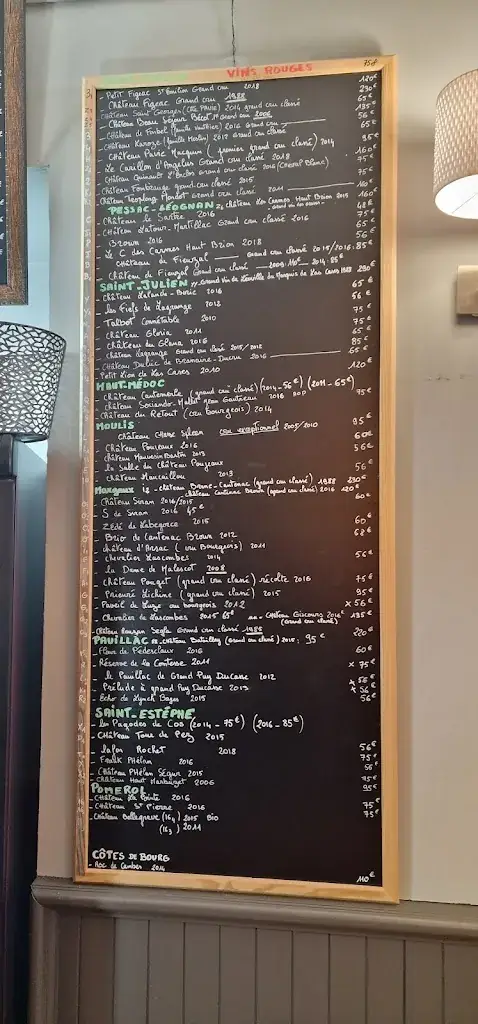 VINS ROUGES 75€
- Petit Figeac St Emilion Grand cru 2018 120€
- Château Figeac Grand cru 1988 230€
- Château Saint Georges (Côte Pavie) 2014 grand cru classé 65€
- Château Beau Séjour Bécot 1er Grand cru 2006 135€
- Château de Fonbel (famille Vauthier) 2016 Grand cru 56€
- Château Karoze (famille Martin) 2017 Grand cru classé 65€
- Château Pavie Macquin (premier grand cru classé) 2014 95€
- Le Carillon d'Angelus Grand cru classé 2018 160€
- Château Quinault L'Enclos Grand cru classé 2016 (Cheval Blanc) 75€
- Château Fombrauge grand cru classé 2015 75€
- Château Troplong Mondot Grand cru classé 2011 160€
PESSAC-LÉOGNAN Château Les Carmes Haut Brion 2015 160€
- Château Le Sartre 2016 48€
- Château Latour-Martillac Grand cru classé 2016 75€
- Brown 2016 65€
- Le C des Carmes Haut Brion 2018 56€
- Château de Fieuzal Grand cru classé 2015/2016: 85€
- Château de Fieuzal Grand cru classé 2009: 110€ 2014: 85€
SAINT-JULIEN Grand Vin de Léoville du Marquis de Las Cases 1988 290€
- Château Lalande-Borie 2016 65€
- Les Fiefs de Lagrange 2012 56€
- Talbot Connétable 2010 75€
- Château Gloria 2011 75€
- Château du Glana 2016 65€
- Château Lagrange Grand cru classé 2015/2012 85€
- Château Duluc de Branaire-Ducru 2016 65€
- Petit Lion de Las Cases 2010 120€
HAUT-MÉDOC
- Château Cantemerle (grand cru classé) (2014-56€) (2011-65€)
- Château Sociando-Mallet Jean Gautreau 2016 75€
- Château du Retout (cru bourgeois) 2014
MOULIS
- Château Chasse Spleen cru exceptionnel 2005/2010 95€
- Château Poujeaux 2016 60€
- Château Mauvesin Barton 2013 56€
- La Salle du Château Poujeaux
- Château Marcaillou 2013 56€
MARGAUX Château Brane-Cantenac (grand cru classé) 1988 230€
Château Cantenac Brown (grand cru classé) 2016 120€
- Château Siran 2016/2015 60€
- S de Siran 2016 45€
- Zédé de Labégorce 2015 60€
- Brio de Cantenac Brown 2012 68€
- Château d'Arsac (cru Bourgeois) 2011
- Chevalier Lascombes 2014 56€
- La Dame de Malescot 2008
- Château Pouget (grand cru classé) récolte 2016 75€
- Prieuré Lichine (grand cru classé) 2015 95€
- Paveil de Luze cru bourgeois 2012 x 56€
- Chevalier de Lascombes 2015 65€ Château Giscours 2016 (Grand cru classé) 135€
- Château Rauzan Segla Grand cru classé 1988 220€
PAUILLAC Château Batailley (Grand cru classé) 2015: 95€
- Fleur de Pédesclaux 2016 60€
- Réserve de la Comtesse 2011 x 75€
- Le Pauillac de Grand Puy Ducasse 2012
- Prélude à grand Puy Ducasse 2013 x 56€
- Echo de Lynch Bages 2015 56€
SAINT-ESTÈPHE
- Les Pagodes de Cos (2014 - 75€) (2016 - 85€)
- Château Tour de Pez 2015
- Lafon Rochet 2018 56€
- Frank Phélan 2016 75€
- Château Phélan Ségur 2015
- Château Haut Marbuzet 2006 95€
POMEROL
- Château La Pointe 2016
- Château St Pierre 2016 75€
- Château Bellegrave 2015 Bio 75€
2011
CÔTES DE BOURG
- Roc de Cambes 2014 110€